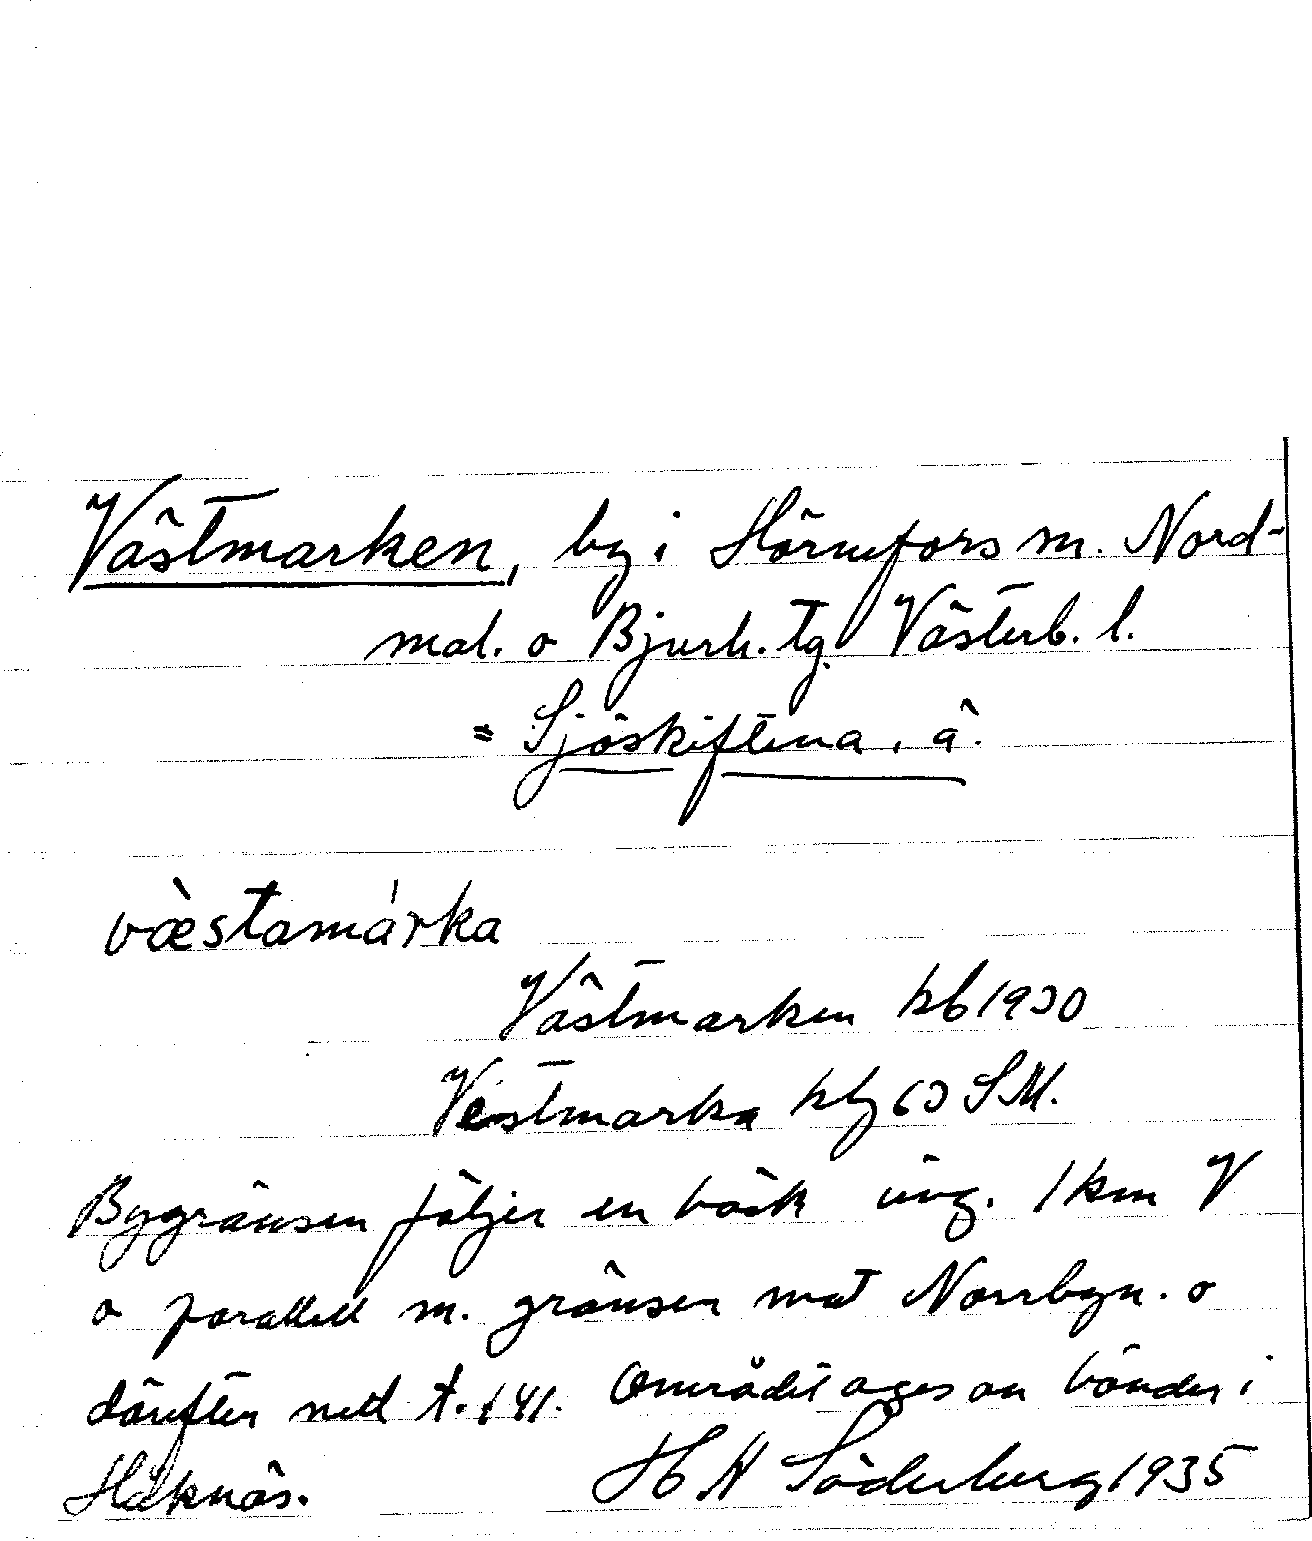 Västmarken, by i Hörnefors sn. Nord-
mal. o Bjurh. tg. Västerb. l.
= Sjöskiftena, ä.
væ̀stamárka
Västmarken kb 1930
Vestmarka kbg 63 SM.
Bygränsen följer en bäck ung. 1 km V
o parallell m. gränsen mot Norrbyn. o
därefter ned t. 141. Området äges av bönder i
Håknäs. H W Söderberg 1935